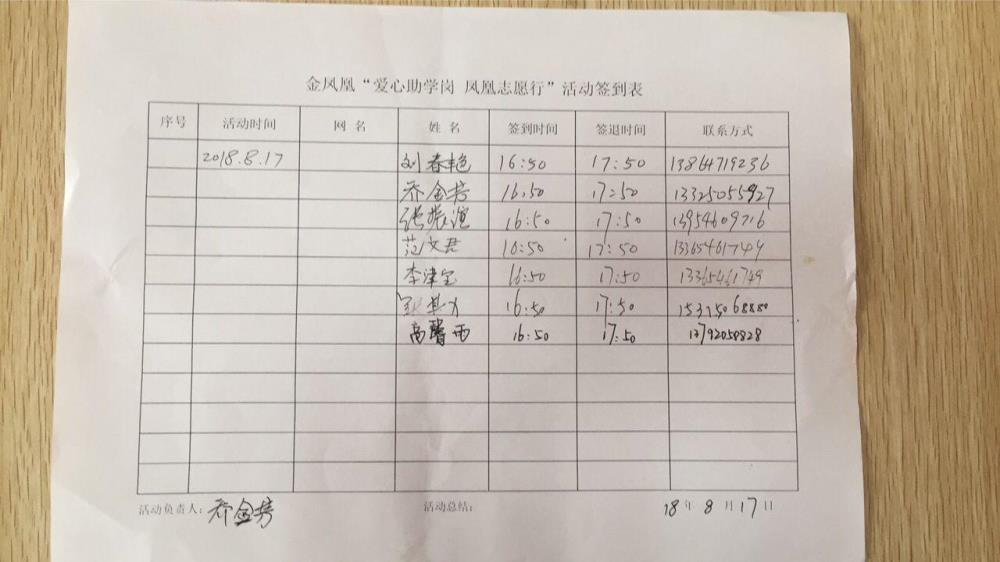 金凤凰“爱心助学岗 凤凰志愿行”活动签到表
序号 活动时间 网 名 姓 名 签到时间 签退时间 联系方式
2018.8.17 刘春艳 16:50 17:50 13864719236
乔金芳 16:50 17:50 13325055927
张振渲 16:50 17:50 13954609716
范文君 16:50 17:50 13365461749
李津宝 16:50 17:50 13365461749
16:50 17:50 15315068880
高睿雨 16:50 17:50 13792050828
活动负责人: 乔金芳 活动总结: 18 年 8 月 17 日